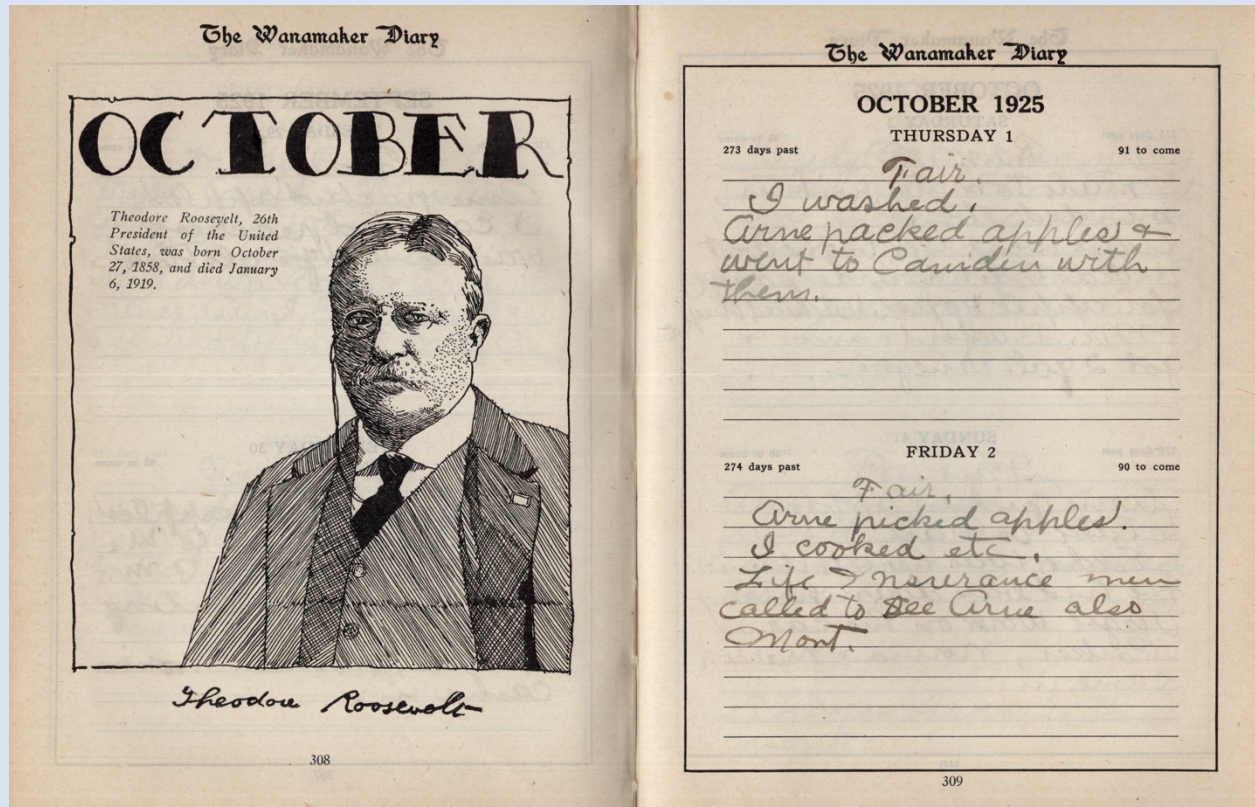 The Wanamaker Diary
OCTOBER
Theodore Roosevelt, 26th
President of the United
States, was born October
27, 1858, and died January
6, 1919.
Theodore Roosevelt
308
The Wanamaker Diary
OCTOBER 1925
THURSDAY 1
273 days past 91 to come
Fair.
I washed.
Arne packed apples &
went to Camden with
them.
FRIDAY 2
274 days past 90 to come
Fair.
Arne picked apples.
I cooked etc.
Life Insurance men
called to see Arne also
Mont.
309